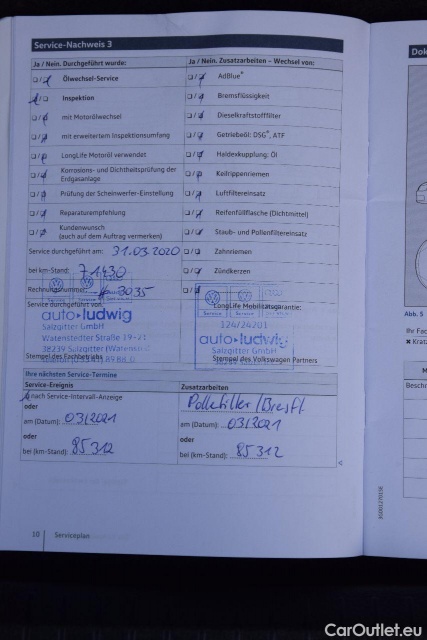 Service-Nachweis 3
Ja / Nein. Durchgeführt wurde:
Ja / Nein. Zusatzarbeiten – Wechsel von:
Ölwechsel-Service
AdBlue®
Inspektion
Bremsflüssigkeit
mit Motorölwechsel
Dieselkraftstofffilter
mit erweitertem Inspektionsumfang
Getriebeöl: DSG®, ATF
LongLife Motoröl verwendet
Haldexkupplung: Öl
Korrosions- und Dichtheitsprüfung der
Erdgasanlage
Keilrippenriemen
Prüfung der Scheinwerfer-Einstellung
Luftfiltereinsatz
Reparaturempfehlung
Reifenfüllflasche (Dichtmittel)
Kundenwunsch
(auch auf dem Auftrag vermerken)
Staub- und Pollenfiltereinsatz
Service durchgeführt am: 31.03.2020
Zahnriemen
bei km-Stand: 71430
Zündkerzen
Rechnungsnummer: 3035
Service durchgeführt von:
LongLife Mobilitätsgarantie:
Service
Service
auto▸ludwig
Salzgitter GmbH
Watenstedter Straße 19-21
38239 Salzgitter
124/24201
auto▸ludwig
Salzgitter GmbH
Stempel des Fachbetriebs
Stempel des Volkswagen Partners
Ihre nächsten Service-Termine
Service-Ereignis
Zusatzarbeiten
nach Service-Intervall-Anzeige
oder
am (Datum): 03/2021
am (Datum): 03/2021
oder
oder
bei (km-Stand): 85 312
bei (km-Stand): 85 312
10
Serviceplan
Abb. 5
Ihr Fac
CarOutlet.eu